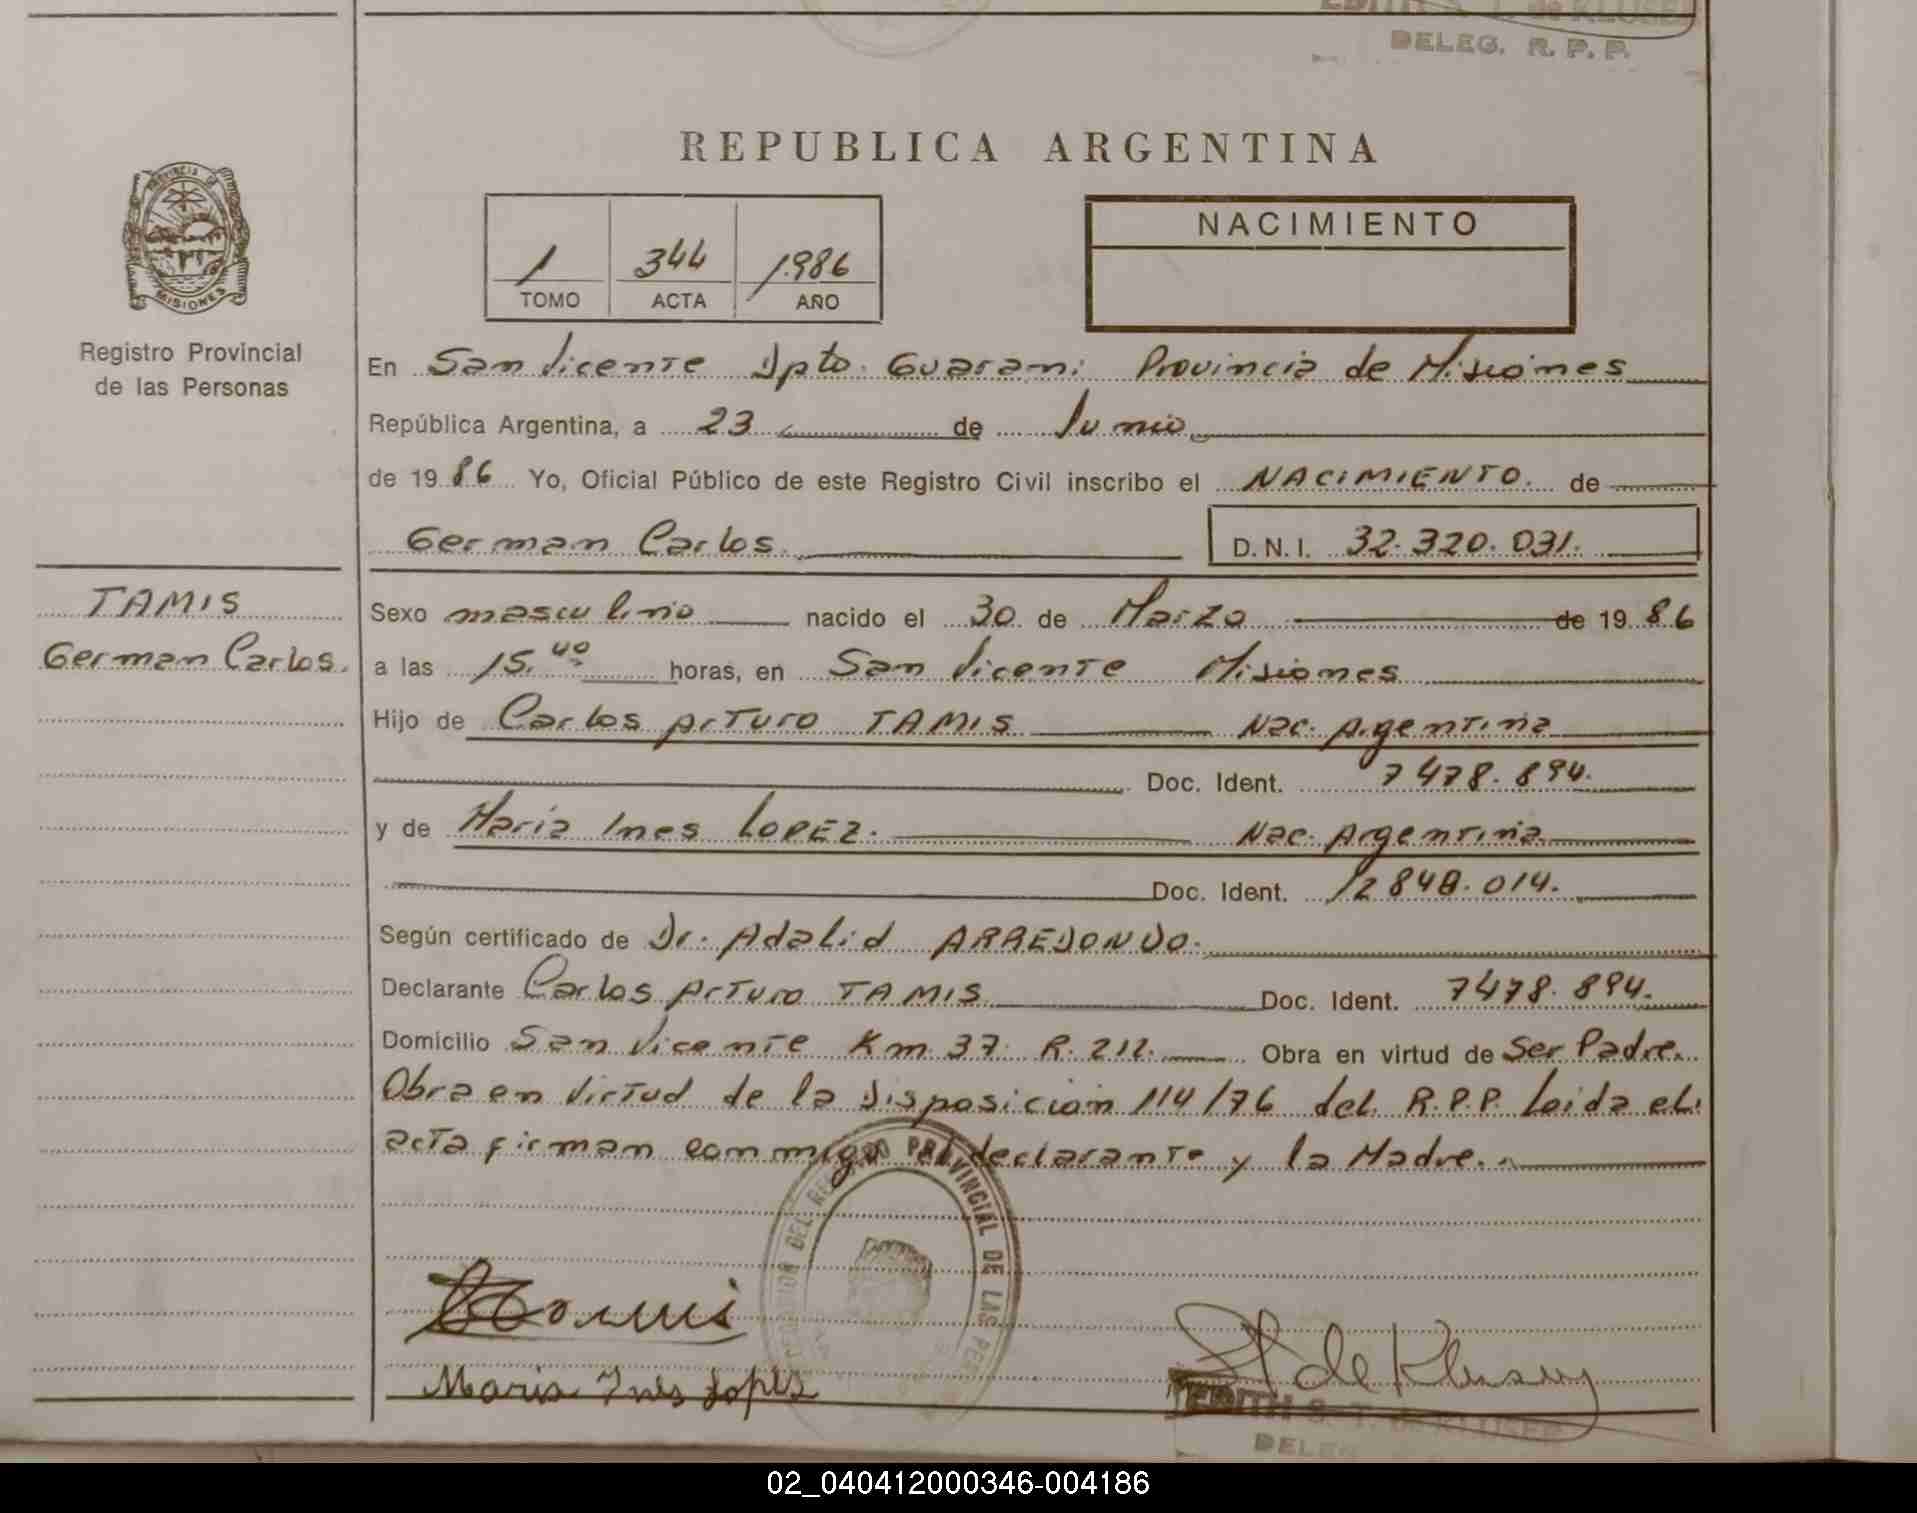 DELEG. R. P. P.
REPUBLICA ARGENTINA
PROVINCIA DE
MISIONES
1 344 1986
TOMO ACTA AÑO
NACIMIENTO
Registro Provincial
de las Personas
En San Vicente Dpto. Guarani Provincia de Misiones
República Argentina, a 23 de Junio
de 19 86 Yo, Oficial Público de este Registro Civil inscribo el NACIMIENTO. de
German Carlos. D. N. I. 32.320.031.
TAMIS
German Carlos.
Sexo masculino nacido el 30 de Marzo de 19 86
a las 15.40 horas, en San Vicente Misiones
Hijo de Carlos Arturo TAMIS Nac. Argentina
Doc. Ident. 7478.894.
y de Maria Ines LOPEZ. Nac. Argentina
Doc. Ident. 12848.014.
Según certificado de Dr. Adalid ARREDONDO.
Declarante Carlos Arturo TAMIS Doc. Ident. 7478.894.
Domicilio San Vicente Km 37 R. 212. Obra en virtud de Ser Padre.
Obra en Virtud de la Disposicion 114/76 del R.P.P. Leida el
acta firman conmigo el declarante y la Madre.
DEL REGISTRO PROVINCIAL DE LAS
Maria Ines Lopez
St de Kluser
EDITH S. T. de KLUSER
DELEG.
02_040412000346-004186